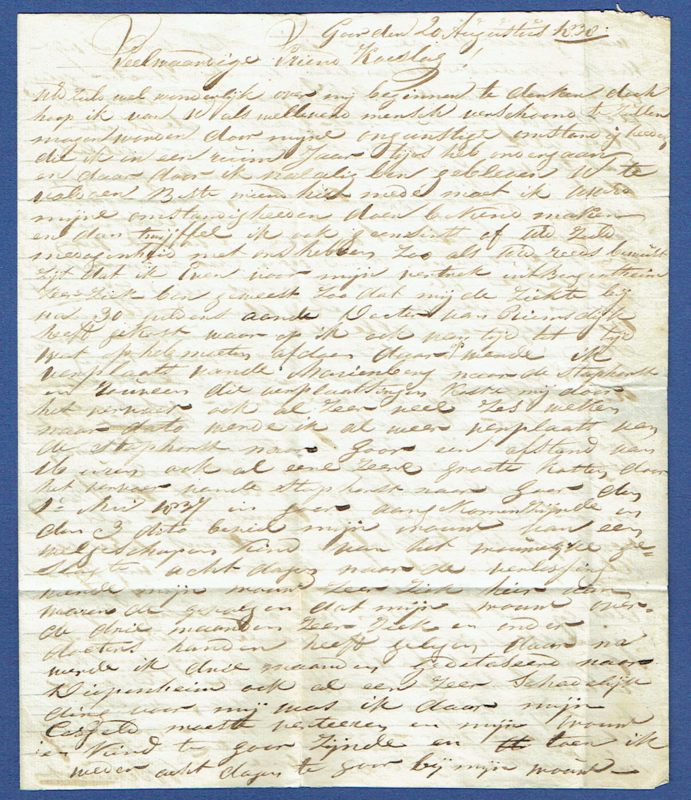 Goor den 20 Augustus 1838.
Veelwaardige Vriend Koeslag!
UE zult wel wonderlijk over mij beginnen te denken doch
hoop ik van U als wellevend mensch verschoond te zullen
worden door mijne ongunstige omstandigheeden
die ik in een ruim Jaar tijds heb ondergaan
en daar door ik nalatig ben gebleven U te
Beste vriend hier mede moet ik UEd
mijne omstandigheeden doen bekend maken
en dan twijffel ik ook geenzints of UEd zult
medogenheid met ons hebben Zoo als UEd reeds bewust
Zijt dat ik even voor mijn vertrek uit Bergentheim
Zeer Ziek ben geweest Zoo dat mij de Ziekte bij
na 30 guldens aande Docter van Riemsdijk
heeft gekost waar op ik ook van tijd tot tijd
wat op heb moeten afdoen daar wende ik
verplaatst vande Mariënberg naar de Staphorst
en die verplaatsingen koste mij door
het vervoer ook al Zeer veel Zes weken
naar dato werde ik al weer verplaatst van
de Staphorst naar Goor een afstand van
16 uren ook al eene Zeere groote kosten door
het vervoer vande Staphorst naar Goor den
1e Mei 1837 in goor aangekomen Zijnde en
den 3 dito beviel mijn vrouw van een
welgeschapen Kind van het vrouwelijke ge-
slacht acht dagen naar de verlossing
werde mijn vrouw Zeer Ziek hier van
waren de gevolgen dat mijn vrouw over
de drie maanden Zeer Ziek en onder
docters handen heeft gelegen daar na
werde ik drie maanden gedetaseerd naar
Diepenheim ook al een Zeer Schadelijk
ding voor mij was ik daar mijn
moeste verteeren en mijn vrouw
en Kind te goor Zijnde en toen ik
weder acht dagen te goor bij mijn vrouw